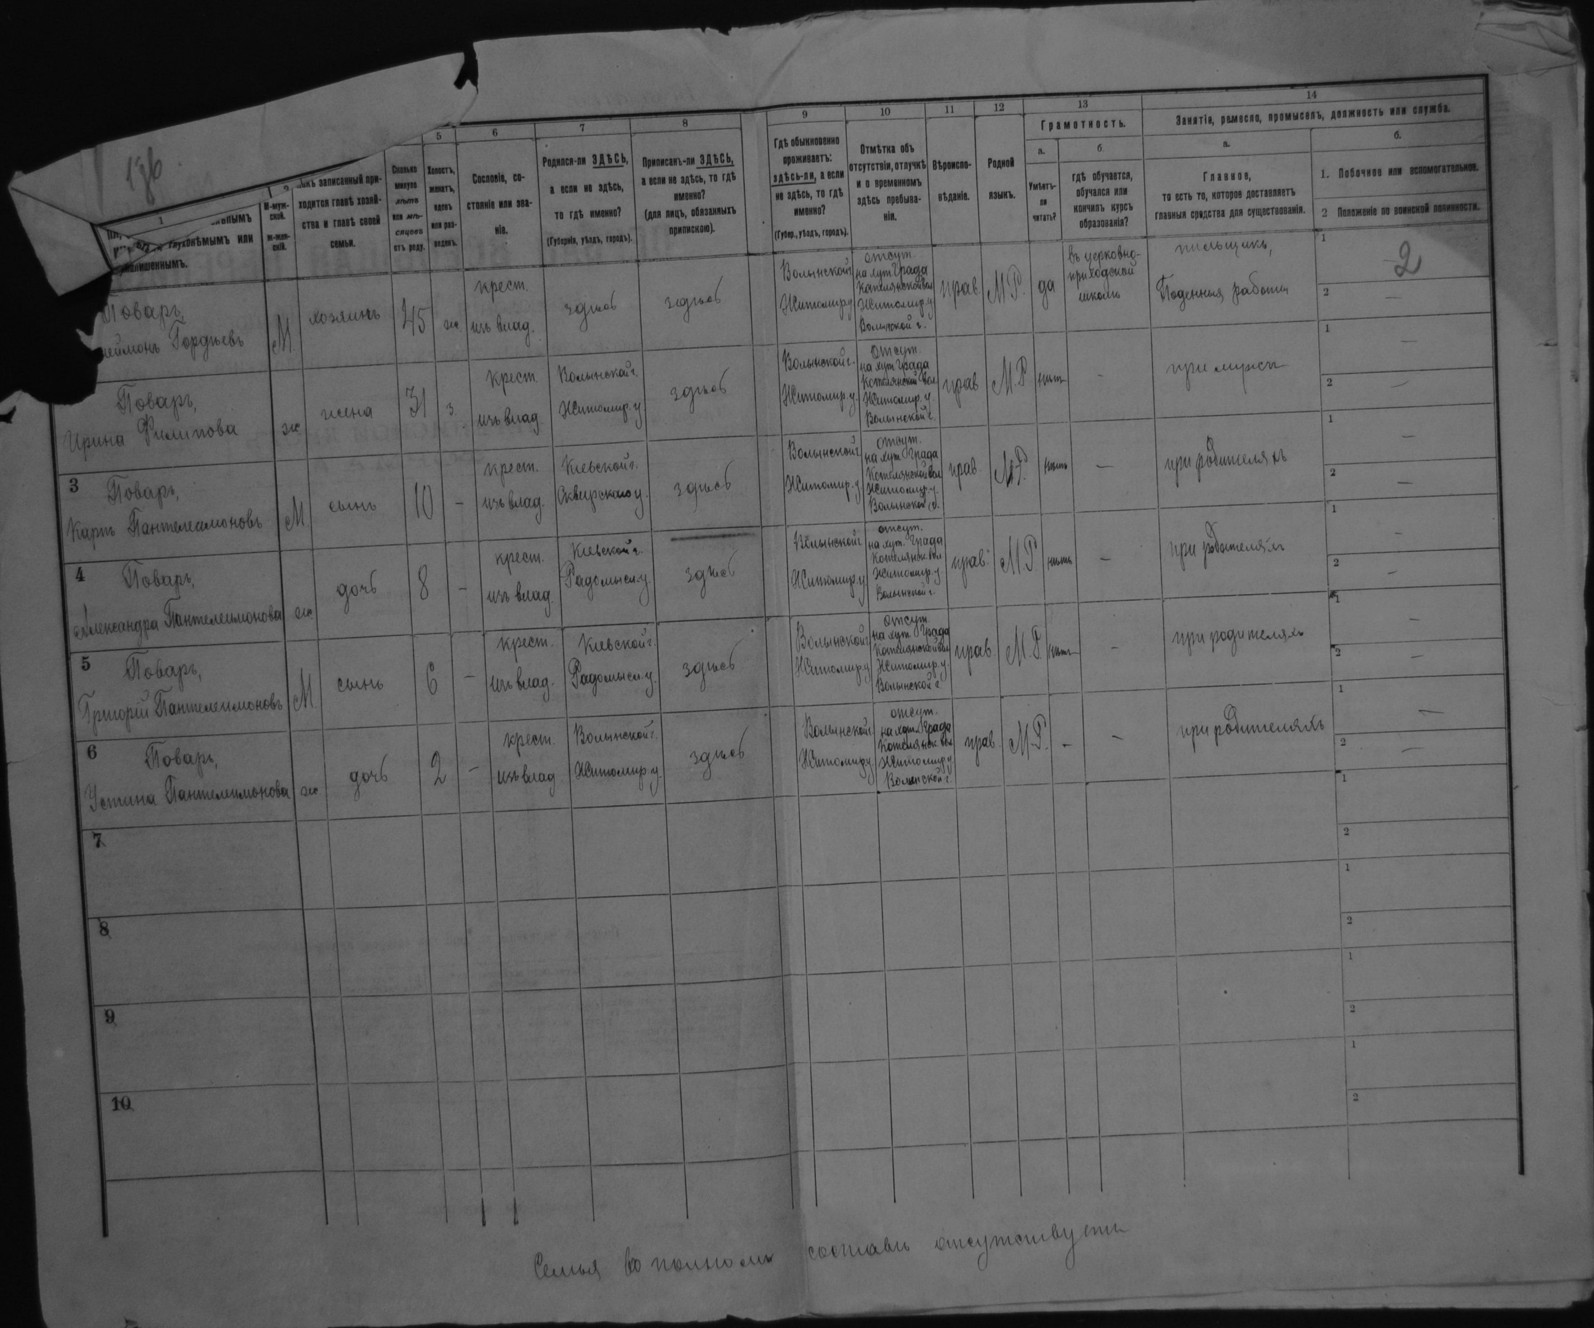 136
1
5
6
7
8
9
10
11
12
13
14
М-муж-
ской.
Ж-жен-
скій.
записанный при-
ходится главѣ хозяй-
ства и главѣ своей
семьи.
Сколько
минуло
лѣтъ
или мѣ-
сяцевъ
отъ роду.
Холостъ,
женатъ,
вдовъ
или раз-
веденъ.
Сословіе, со-
стояніе или зва-
ніе.
Родился-ли ЗДѢСЬ,
а если не здѣсь,
то гдѣ именно?
(Губернія, уѣздъ, городъ).
Приписанъ-ли ЗДѢСЬ,
а если не здѣсь, то гдѣ
именно?
(для лицъ, обязанныхъ
припискою).
Гдѣ обыкновенно
проживаетъ:
здѣсь-ли, а если
не здѣсь, то гдѣ
именно?
(Губер., уѣздъ, городъ).
Отмѣтка объ
отсутствіи, отлучкѣ
и о временномъ
здѣсь пребыва-
ніи.
Вѣроиспо-
вѣданіе.
Родной
языкъ.
Грамотность.
а.
Умѣетъ-
ли
читать?
б.
гдѣ обучается,
обучался или
кончилъ курсъ
образованія?
Занятіе, ремесло, промыселъ, должность или служба.
а.
Главное,
то есть то, которое доставляетъ
главныя средства для существованія.
б.
1. Побочное или вспомогательное.
2 Положеніе по воинской повинности.
Поваръ,
Гордѣевъ
М
хозяинъ
45
ж.
крест.
изъ влад.
здѣсь
здѣсь
Волынской
Житомир у
отсут.
на хут. Града
Котелянской вол
Житомир. у
Волынской г.
прав.
М.Р.
да
въ церковно-
приходской
школѣ
пильщикъ,
Поденныя работы
1
2
2
Поваръ,
Ирина Филипова
ж
жена
31
з.
крест.
изъ влад.
Волынской г.
Житомир. у
здѣсь
Волынской г.
Житомир. у.
отсут.
на хут. Града
Котелянской вол.
Житомир. у.
Волынской г.
прав
М.Р
нѣтъ
-
при мужѣ
1 —
2 —
3
Поваръ,
Карпъ Пантелеимоновъ
М
сынъ
10
-
крест.
изъ влад.
Кіевской г.
Сквирскаго у.
здѣсь
Волынской г.
Житомир. у
отсут.
на хут. Града
Котелянской вол
Житомир. у.
Волынской г.
прав.
М.Р.
нѣтъ
—
при родителяхъ
1 —
2 —
4
Поваръ,
Александра Пантелеимонова
ж
дочь
8
-
крест.
изъ влад.
Кіевской г.
Радомысл. у
здѣсь
Волынской г
Житомир у
отсут.
на хут. Града
Котелянск. вол
Житомир. у
Волынской г.
прав.
М.Р
нѣтъ
-
при родителяхъ
1 —
2 —
5
Поваръ,
Григорій Пантелеимоновъ
М
сынъ
6
-
крест.
изъ влад.
Кіевской г.
Радомысл. у.
здѣсь
Волынской
Житомир у
отсут.
на хут. Града
Котелянской вол
Житомир. у
Волынской г
прав.
М.Р
нѣтъ
-
при родителяхъ
1 —
2 —
6
Поваръ,
Устина Пантелеимонова
ж
дочь
2
-
крест.
изъ влад
Волынской г.
Житомир. у.
здѣсь
Волынской
Житомир у
отсут.
на хут. Града
Котелянск. вол
Житомир у
Волынской г.
прав.
М.Р.
-
-
при родителяхъ
1 —
2 —
7
1
2
8
1
2
9
1
2
10
1
2
Семья въ полномъ составѣ отсутствуетъ